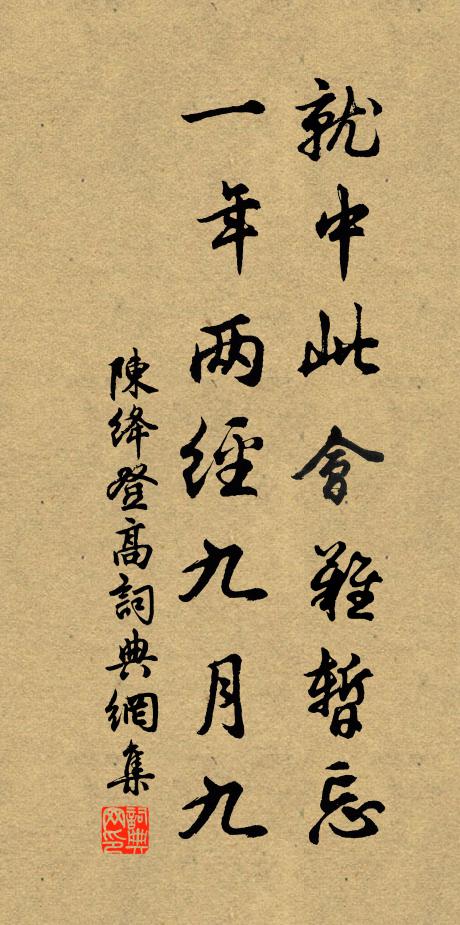 就中此會難暫忘
一年两經九月九
陳绛登高詞典網集
詞典网印